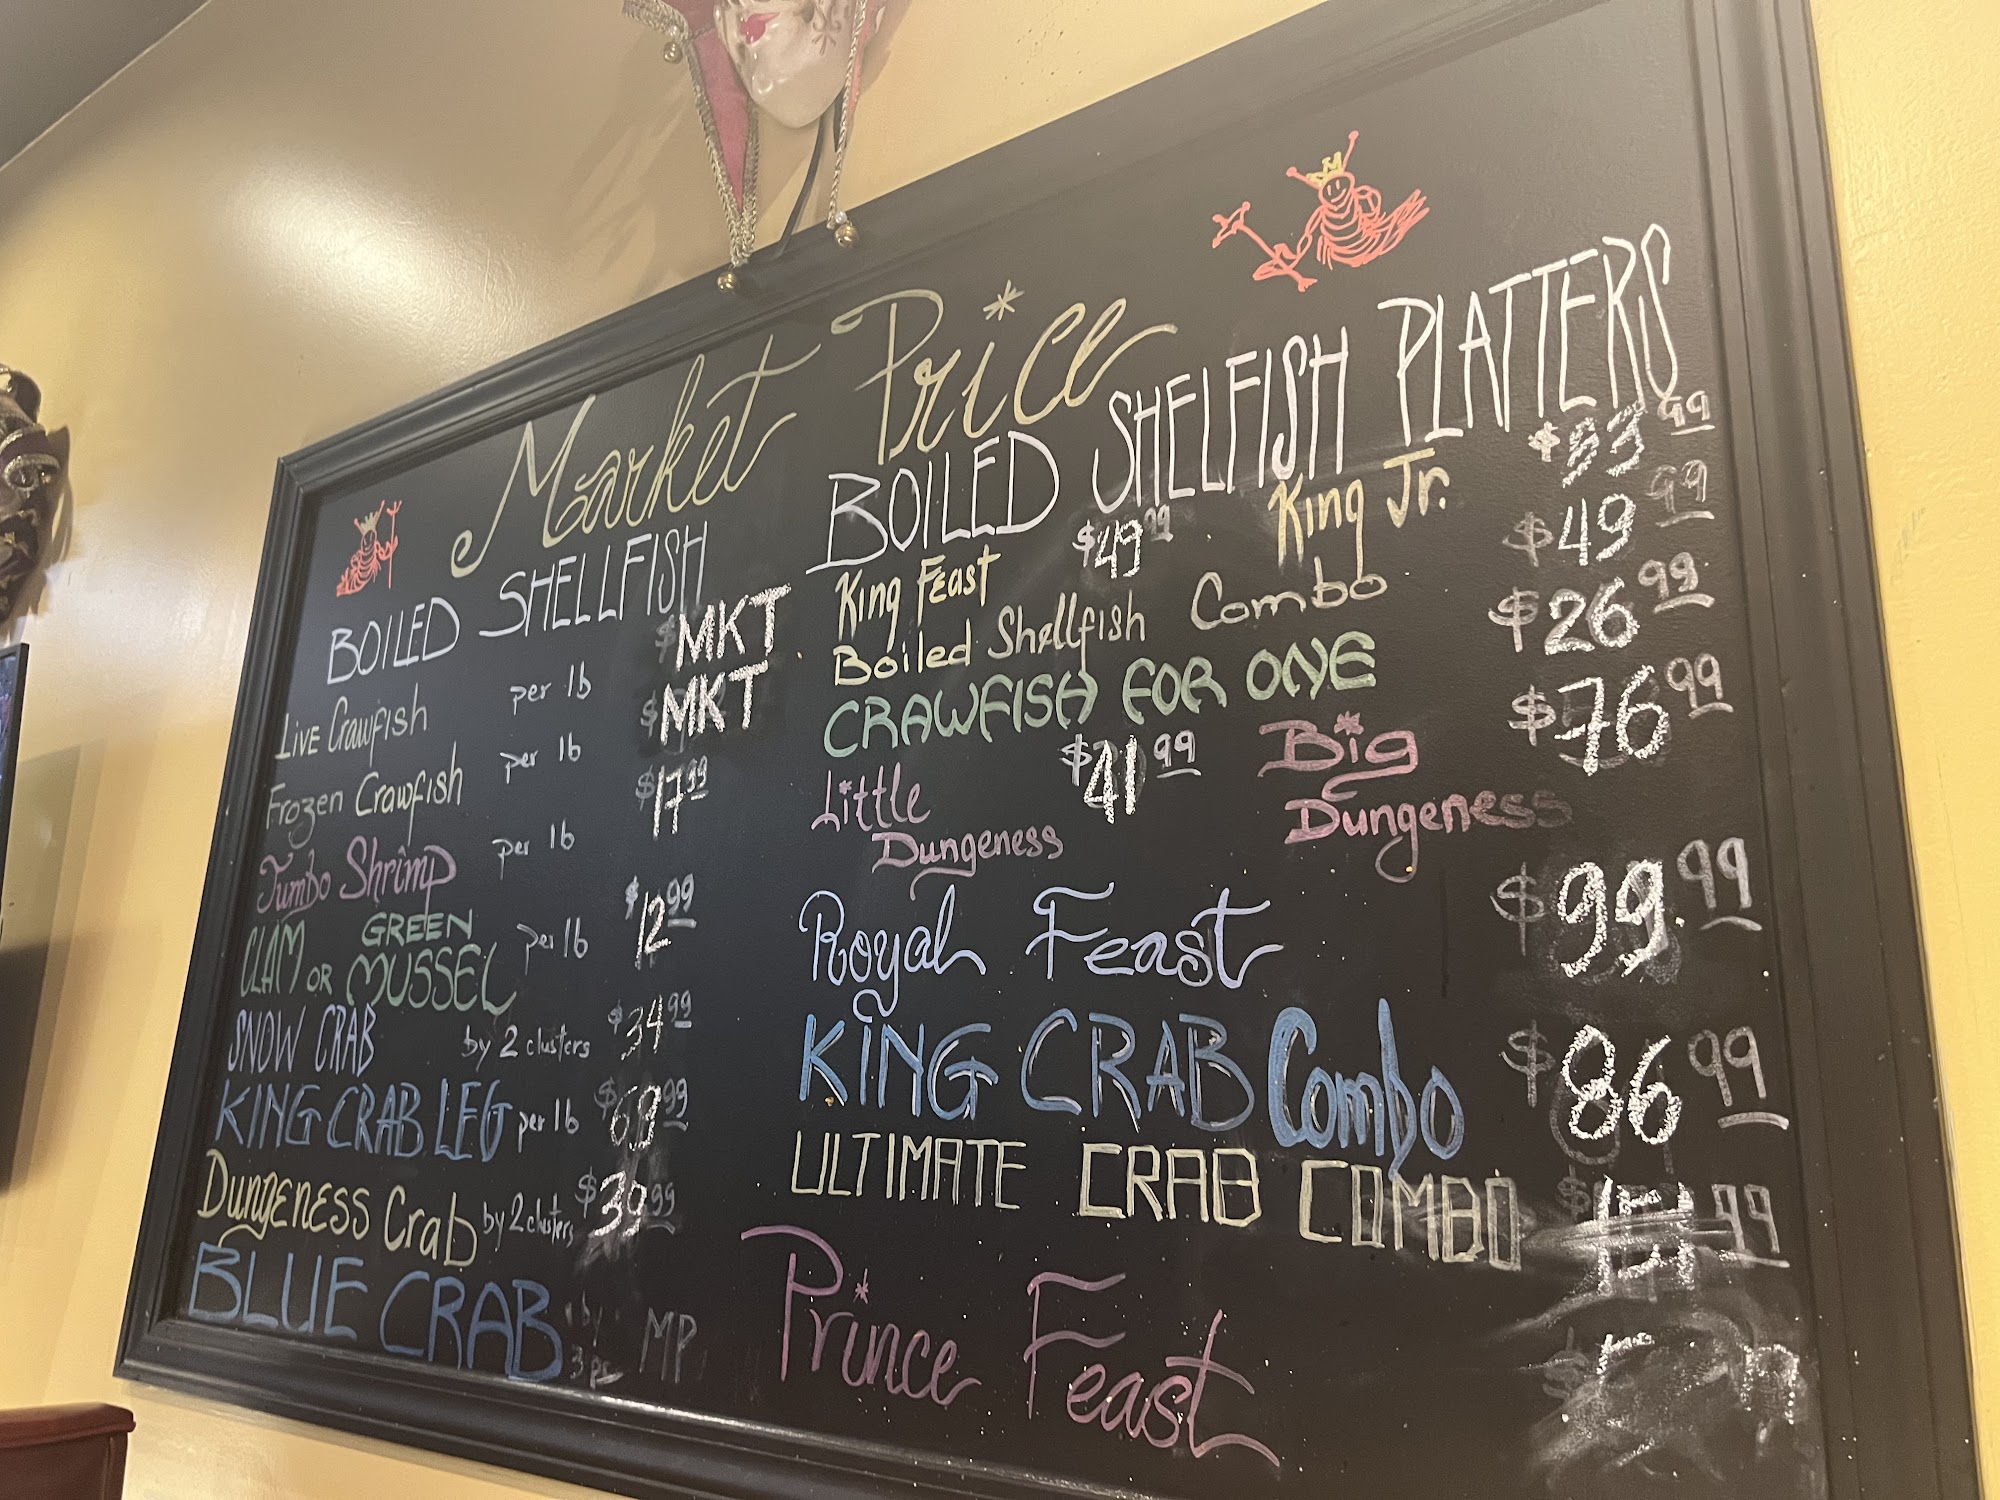 Market Price
BOILED SHELLFISH
Live Crawfish per lb $MKT
Frozen Crawfish per lb $MKT
Jumbo Shrimp per lb $17.99
CLAM OR GREEN MUSSEL per lb $12.99
SNOW CRAB by 2 clusters $34.99
KING CRAB LEG per lb $68.99
DUNGENESS Crab by 2 clusters $39.99
BLUE CRAB by 3 ps MP
BOILED SHELFISH PLATTERS
King Feast $49.99 King Jr. $33.99
Boiled Shellfish Combo $49.99
CRAWFISH FOR ONE $26.99
Little Dungeness $41.99 Big Dungeness $76.99
Royal Feast $99.99
KING CRAB Combo $86.99
ULTIMATE CRAB COMBO
Prince Feast